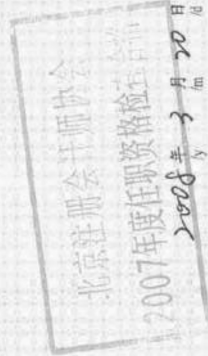 北京注册会计师协会
2007年度任职资格检查合格
2008年3月20日
y m d